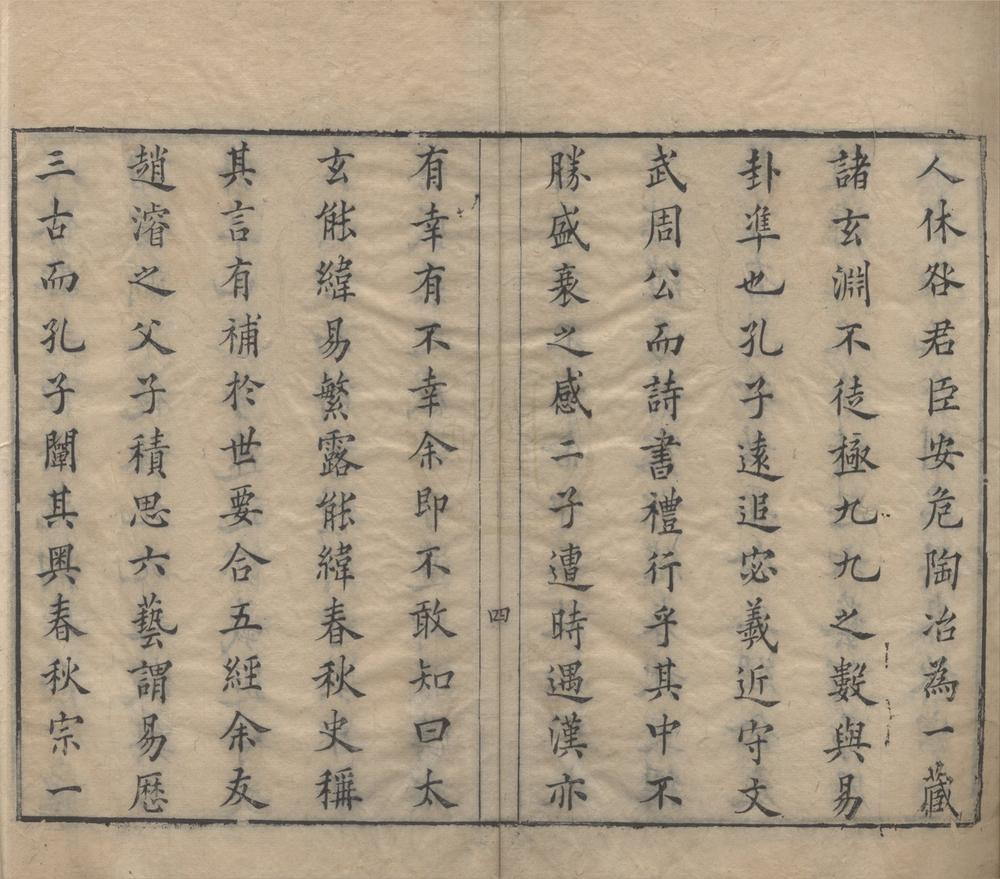 人休咎君臣安危陶冶為一藏
諸玄淵不徒極九九之數與易
卦準也孔子遠追宓羲近守文
武周公而詩書禮行乎其中不
勝盛衰之感二子遭時遇漢亦
四
有幸有不幸余即不敢知曰太
玄能緯易繁露能緯春秋史稱
其言有補於世要合五經余友
趙濬之父子積思六藝謂易歷
三古而孔子闡其奧春秋宗一